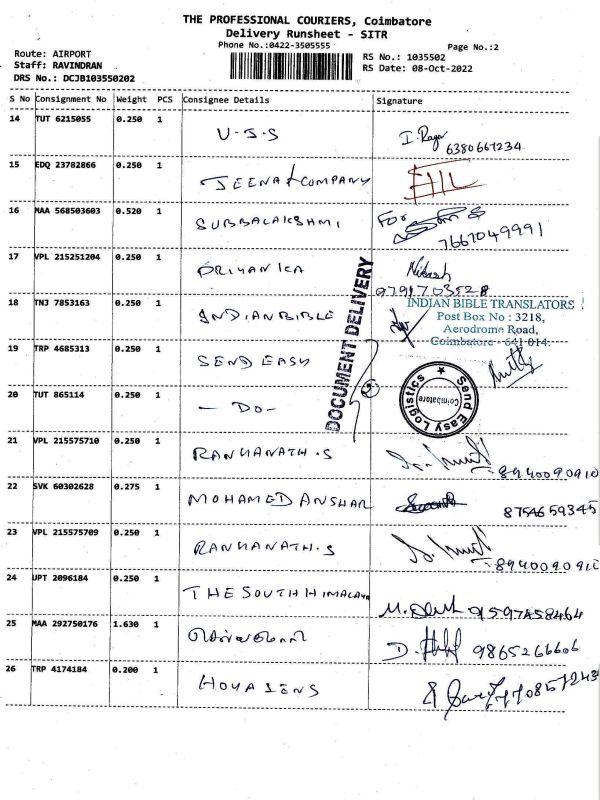 THE PROFESSIONAL COURIERS, Coimbatore
Delivery Runsheet - SITR
Phone No.:0422-3505555
Page No.:2
Route: AIRPORT
Staff: RAVINDRAN
DRS No.: DCJB103550202
RS No.: 1035502
RS Date: 08-Oct-2022
S No Consignment No Weight PCS Consignee Details Signature
14 TUT 6215055 0.250 1 U-S-S 6380667234
15 EDQ 23782866 0.250 1 JEENA & COMPANY
16 MAA 568503603 0.520 1 SUBBALAKSHMI For 7667049991
17 VPL 215251204 0.250 1 PRIYANKA 9791703528
18 TNJ 7853163 0.250 1 INDIAN BIBLE
INDIAN BIBLE TRANSLATORS
Post Box No : 3218,
Aerodrome Road,
Coimbatore - 641 014.
DOCUMENT DELIVERY
19 TRP 4685313 0.250 1 SEND EASY
Send Easy Logistics
Coimbatore
20 TUT 865114 0.250 1 - DO -
21 VPL 215575710 0.250 1 RANHANATH.S 8940090910
22 SVK 60302628 0.275 1 MOHAMED ANSHAR 8754659345
23 VPL 215575709 0.250 1 RANHANATH.S 894009091
24 UPT 2096184 0.250 1 THE SOUTH HIMALAYA 9597458464
25 MAA 292750176 1.630 1 9865266606
26 TRP 4174184 0.200 1 HOYA LENS